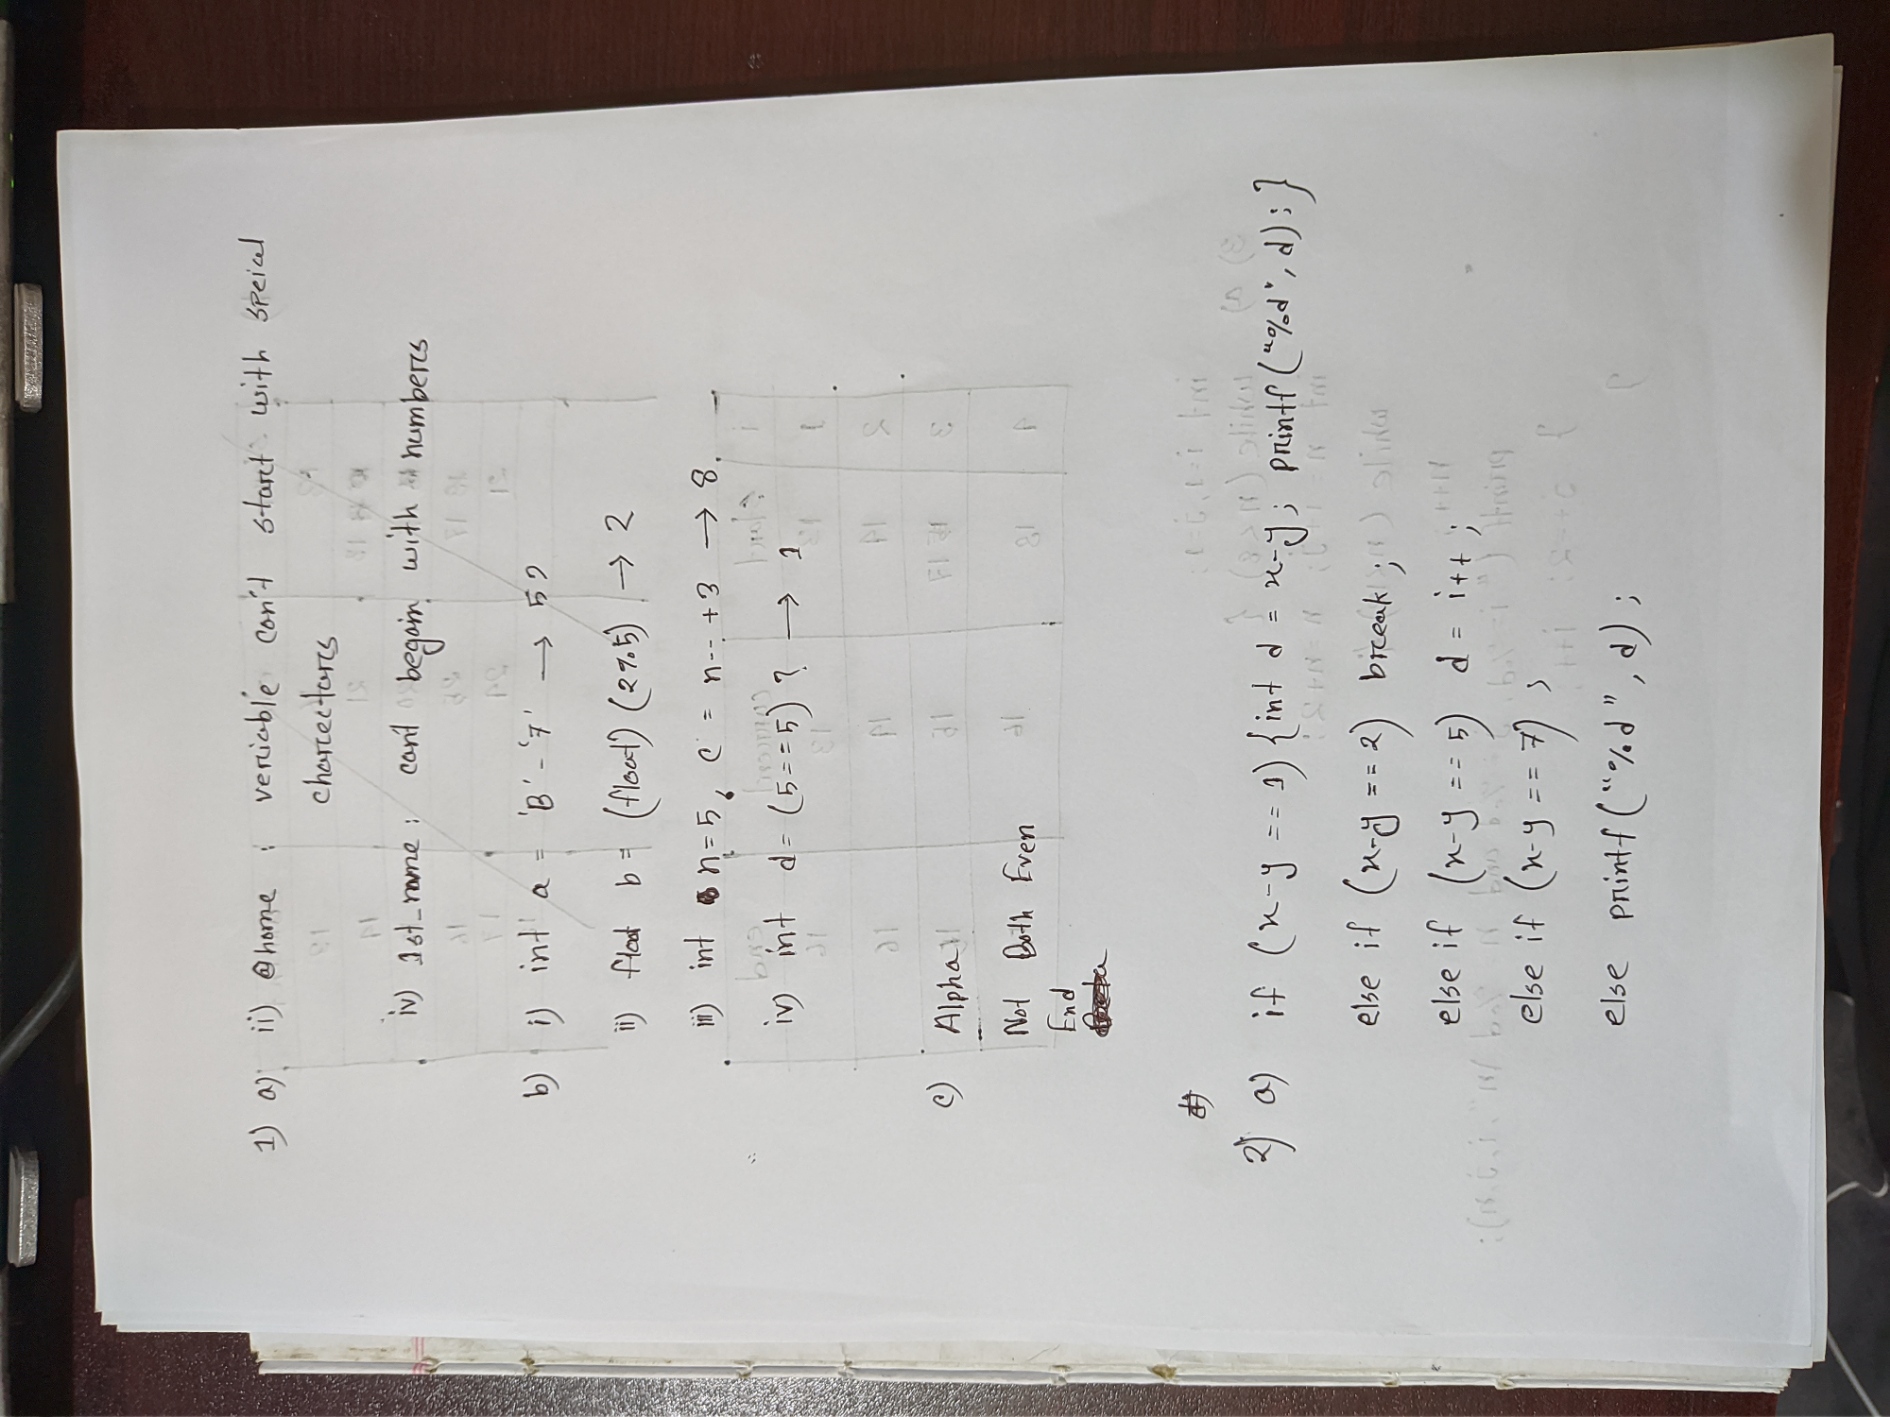 1) a) ii) @home : veriable can't start with speical
charectars
iv) 1st_name : can't begain with numbers
b) i) int a = 'B' - '7' → 5?
ii) float b = (float) (2%5) → 2
iii) int n = 5, c = n-- + 3 → 8.
iv) int d = (5==5) ? → 1
c) Alpha
Not Both Even
End
d)
2) a) if (x-y == 1) { int d = x-y; printf ("%d", d); }
else if (x-y == 2) break;
else if (x-y == 5) d = i++;
else if (x-y == 7) ;
else printf ("%d", d);